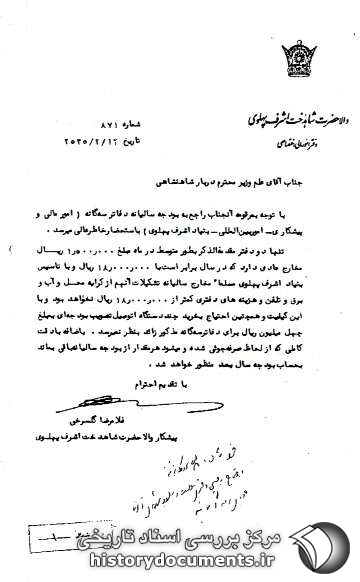 والاحضرت شاهدخت اشرف پهلوی
دفتر امور مالی و اختصاصی
شماره ۸۷۱
تاریخ ۲۵۳۵/۲/۱۲
جناب آقای علم وزیر محترم دربار شاهنشاهی
با توجه به مرقومه آنجناب راجع به بودجه سالیانه دفاتر سه‌گانه ( امور مالی و
پیشکاری - امور بین‌المللی - بنیاد اشرف پهلوی ) باستحضار خاطر عالی میرسد .
تنها دو دفتر مقدم‌الذکر بطور متوسط در ماه مبلغ ۱٫۵۰۰٫۰۰۰ ریال
مخارج عادی دارد که در سال برابر است با ۱۸٫۰۰۰٫۰۰۰ ریال و با تاسیس
بنیاد اشرف پهلوی مسلما" مخارج سالیانه تشکیلات آنهم از کرایه محل و آب و
برق و تلفن و هزینه های دفتری کمتر از ۱۸٫۰۰۰٫۰۰۰ ریال نخواهد بود . و با
این کیفیت و همچنین احتیاج بخرید چند دستگاه اتومبیل تصویب بودجه‌ای بمبلغ
چهل میلیون ریال برای دفاتر سه‌گانه مذکور زائد بنظر نمیرسد . باضافه با دقت
کاملی که از لحاظ صرفه‌جوئی شده و میشود هر مقدار از بودجه سالیانه باقی بماند
بحساب بودجه سال بعد منظور خواهد شد .
با تقدیم احترام
غلامرضا گلسرخی
پیشکار والاحضرت شاهدخت اشرف پهلوی
مرکز بررسی اسناد تاریخی
historydocuments.ir